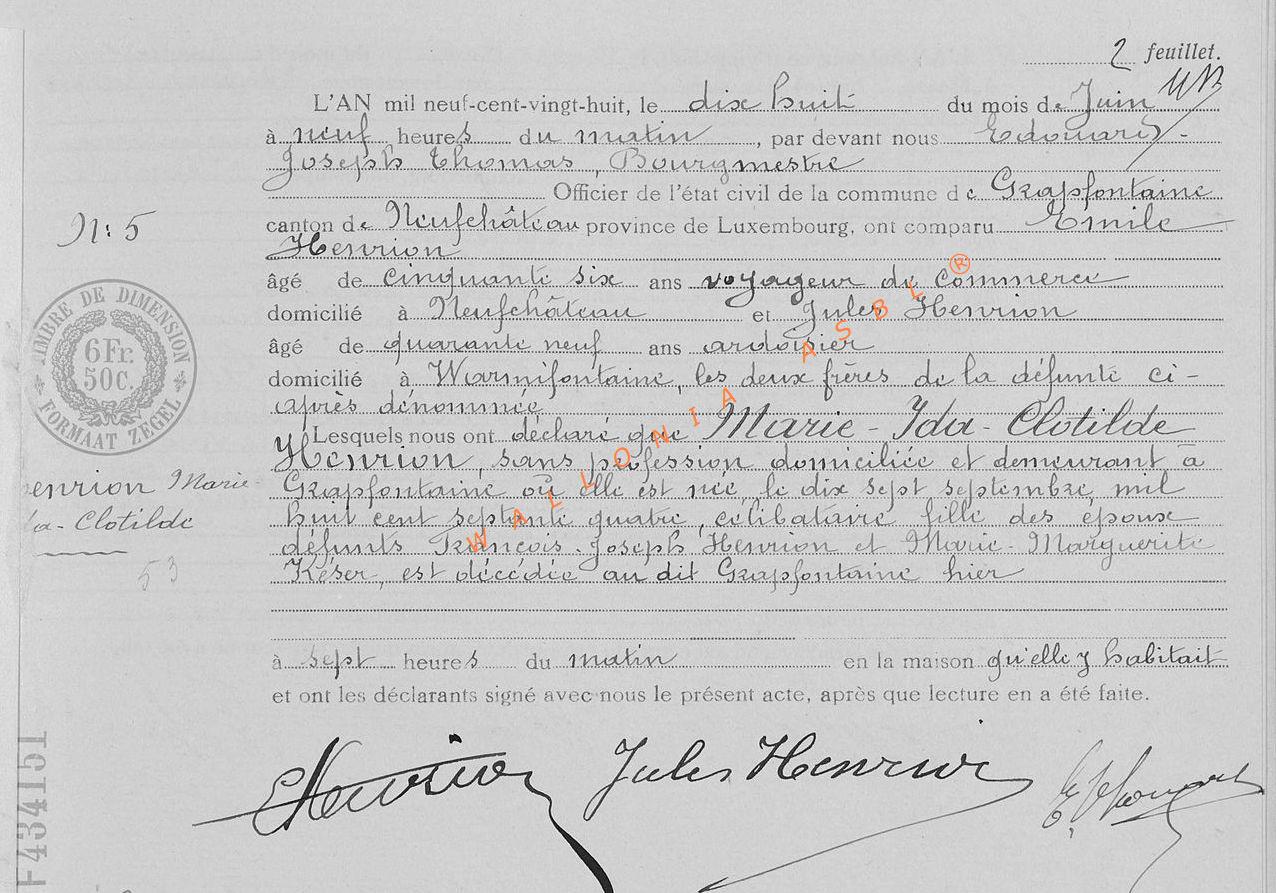 2 feuillet.
L'AN mil neuf-cent-vingt-huit, le dix huit du mois de Juin
à neuf heures du matin, par devant nous Edouard-
Joseph Thomas, Bourgmestre
Officier de l'état civil de la commune de Grapfontaine
N: 5
canton de Neufchâteau province de Luxembourg, ont comparu Emile
Henrion
âgé de cinquante six ans voyageur de commerce
domicilié à Neufchâteau et Jules Henrion
âgé de quarante neuf ans ardoisier
domicilié à Warmifontaine, les deux frères de la défunte ci-
après dénommée
Lesquels nous ont déclaré que Marie-Ida-Clotilde
Henrion, sans profession domiciliée et demeurant à
Grapfontaine où elle est née, le dix sept septembre mil
huit cent septante quatre, célibataire fille des époux
défunts François-Joseph Henrion et Marie-Marguerite
Késer, est décédée au dit Grapfontaine hier
à sept heures du matin en la maison qu'elle y habitait
et ont les déclarants signé avec nous le présent acte, après que lecture en a été faite.
TIMBRE DE DIMENSION
6 Fr.
50c.
FORMAAT ZEGEL
enrion Marie-
da-Clotilde
53
F434151
WALLONIA ASBL ®
Henrion
Jules Henrion
E Thomas